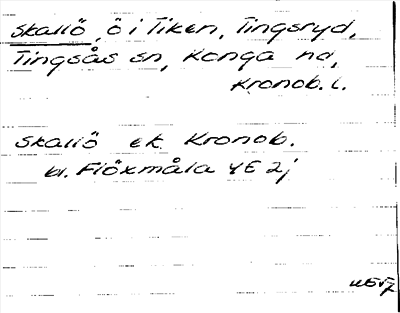 Skallö, ö i Tiken, Tingsryd,
Tingsås sn, Konga hd,
Kronob. l.
Skallö ek. Kronob.
bl. Flöxmåla 4E 2j